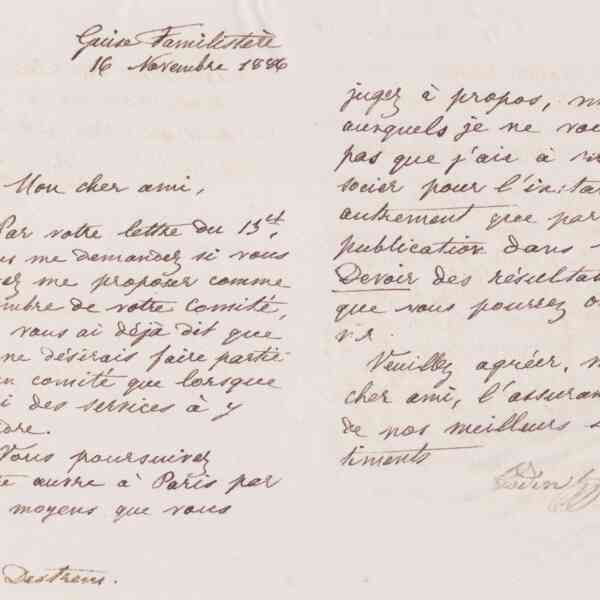 Guise Familistère
16 Novembre 1886
Mon cher ami,
Par votre lettre du 13 ct,
us me demandez si vous
ez me proposer comme
mbre de votre Comité,
vous ai déjà dit que
ne désirais faire partie
n comité que lorsque
i des services à y
dre.
Vous poursuivez
e œuvre à Paris par
moyens que vous
Destrem.
jugez à propos, m
auxquels je ne vo
pas que j'aie à m
socier pour l'instan
autrement que par
publication dans
Devoir des résulta
que vous pourrez o
vir.
Veuillez agréer, m
cher ami, l'assuran
de nos meilleurs s
timents
Godin